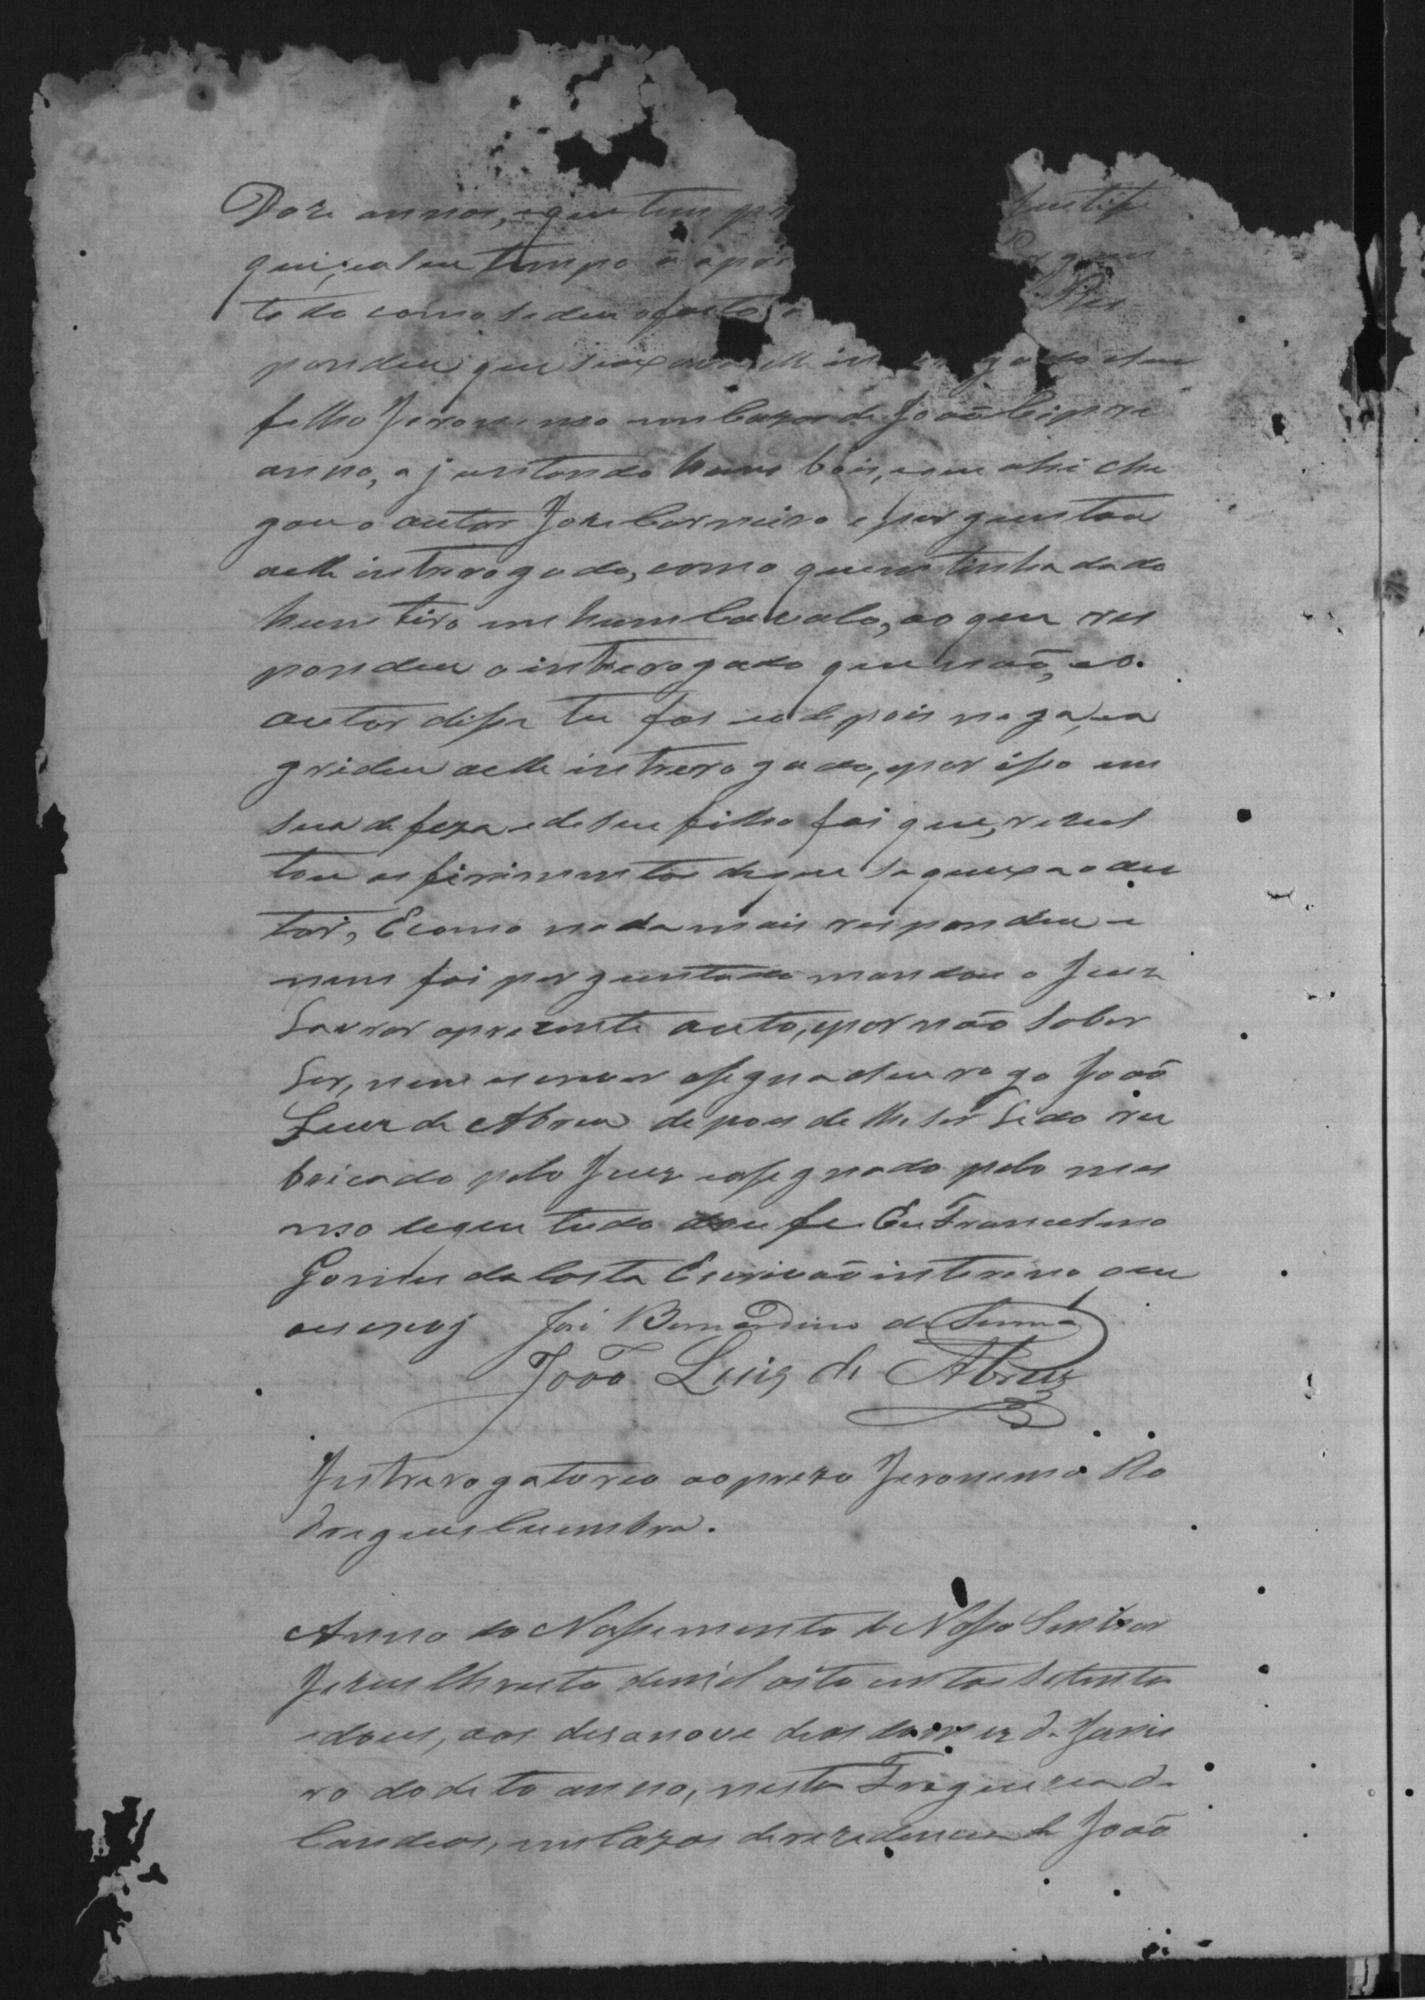 Doze annos, e que tem pr justifi
que, em seu tempo o apre Pergun
tado como se deu o facto Res
pondeu que seaxava elle in gado e seu
filho Jeronimo em Cazas de João Cipri
anno, ajuntando huns bois, e que ahi che
gou o autor Joze Carneiro e perguntou
aelle intrerogado, como quem tinha dado
hum tiro em hum Cavalo, ao que res
pondeu o intrerogado que não, e o
autor disse tu fas e depois nega, e a
gridiu aelle intrerogado, e por isso em
sua defeza e de seu filho foi que, rezul
tou os firimentos de que se queixa o au
tor, E como nada mais respondeu e
nem foi perguntado mandou o Juiz
Lavrar oprezente auto, e por não saber
Ler, nem escrever assigna a seu rogo João
Luiz de Abreu depois de lhe ser Lido ru
bricado pelo Juiz e assignado pelo mes
mo de que tudo dou fe Eu Francelino
Gomes da Costa Escrivão interino que
oescrevj José Bernardino de Senna
João Luis de Abreu
Intrerogatorio ao prezo Jeronimo Ro
drigues Cuimbra.
Anno do Nassimento de Nosso Senhor
Jezus Christo de mil oito centos setenta
e dous, aos dezanove dias do mez de Janei
ro do dito anno, nesta Freguezia de
Candeas, em Cazas de rezidencia de João